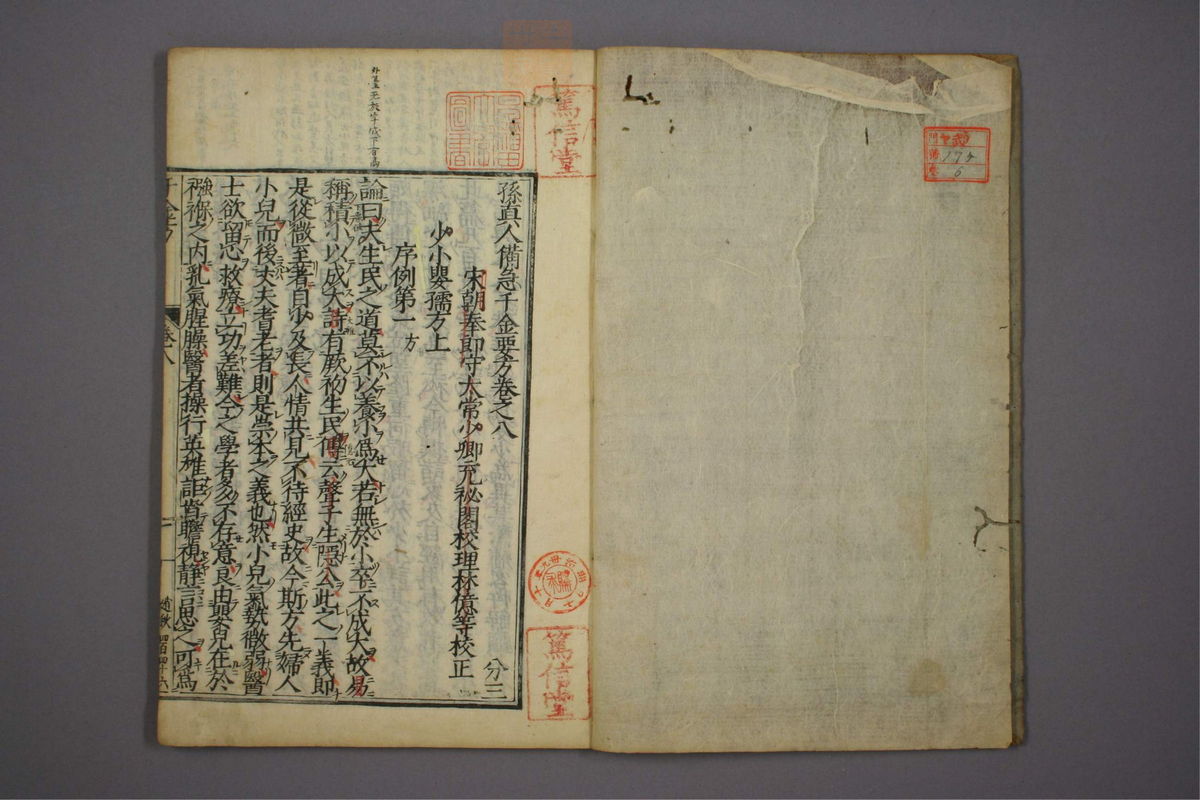 孫真人備急千金要方卷之八
分三
宋朝奉郎守太常少卿充秘閣校理林億等校正
少小嬰孺方上
序例第一 方
論曰夫生民之道莫不以養小爲大若無於小卒不成大故易
稱積小以成大詩有厥初生民傳云聲子生隱公此之一義即
是從微至著自少及長人情共見不待經史故今斯方先婦人
小兒而後丈夫耆老者則是崇本之義也然小兒氣埶微弱醫
士欲留心救療立功差難今之學者多不存意良由嬰兒在於
襁褓之内乳氣腥臊醫者操行英雄詎肯瞻視靜言思之可爲
卷八
篤信堂
篤信堂
圖書
174
6